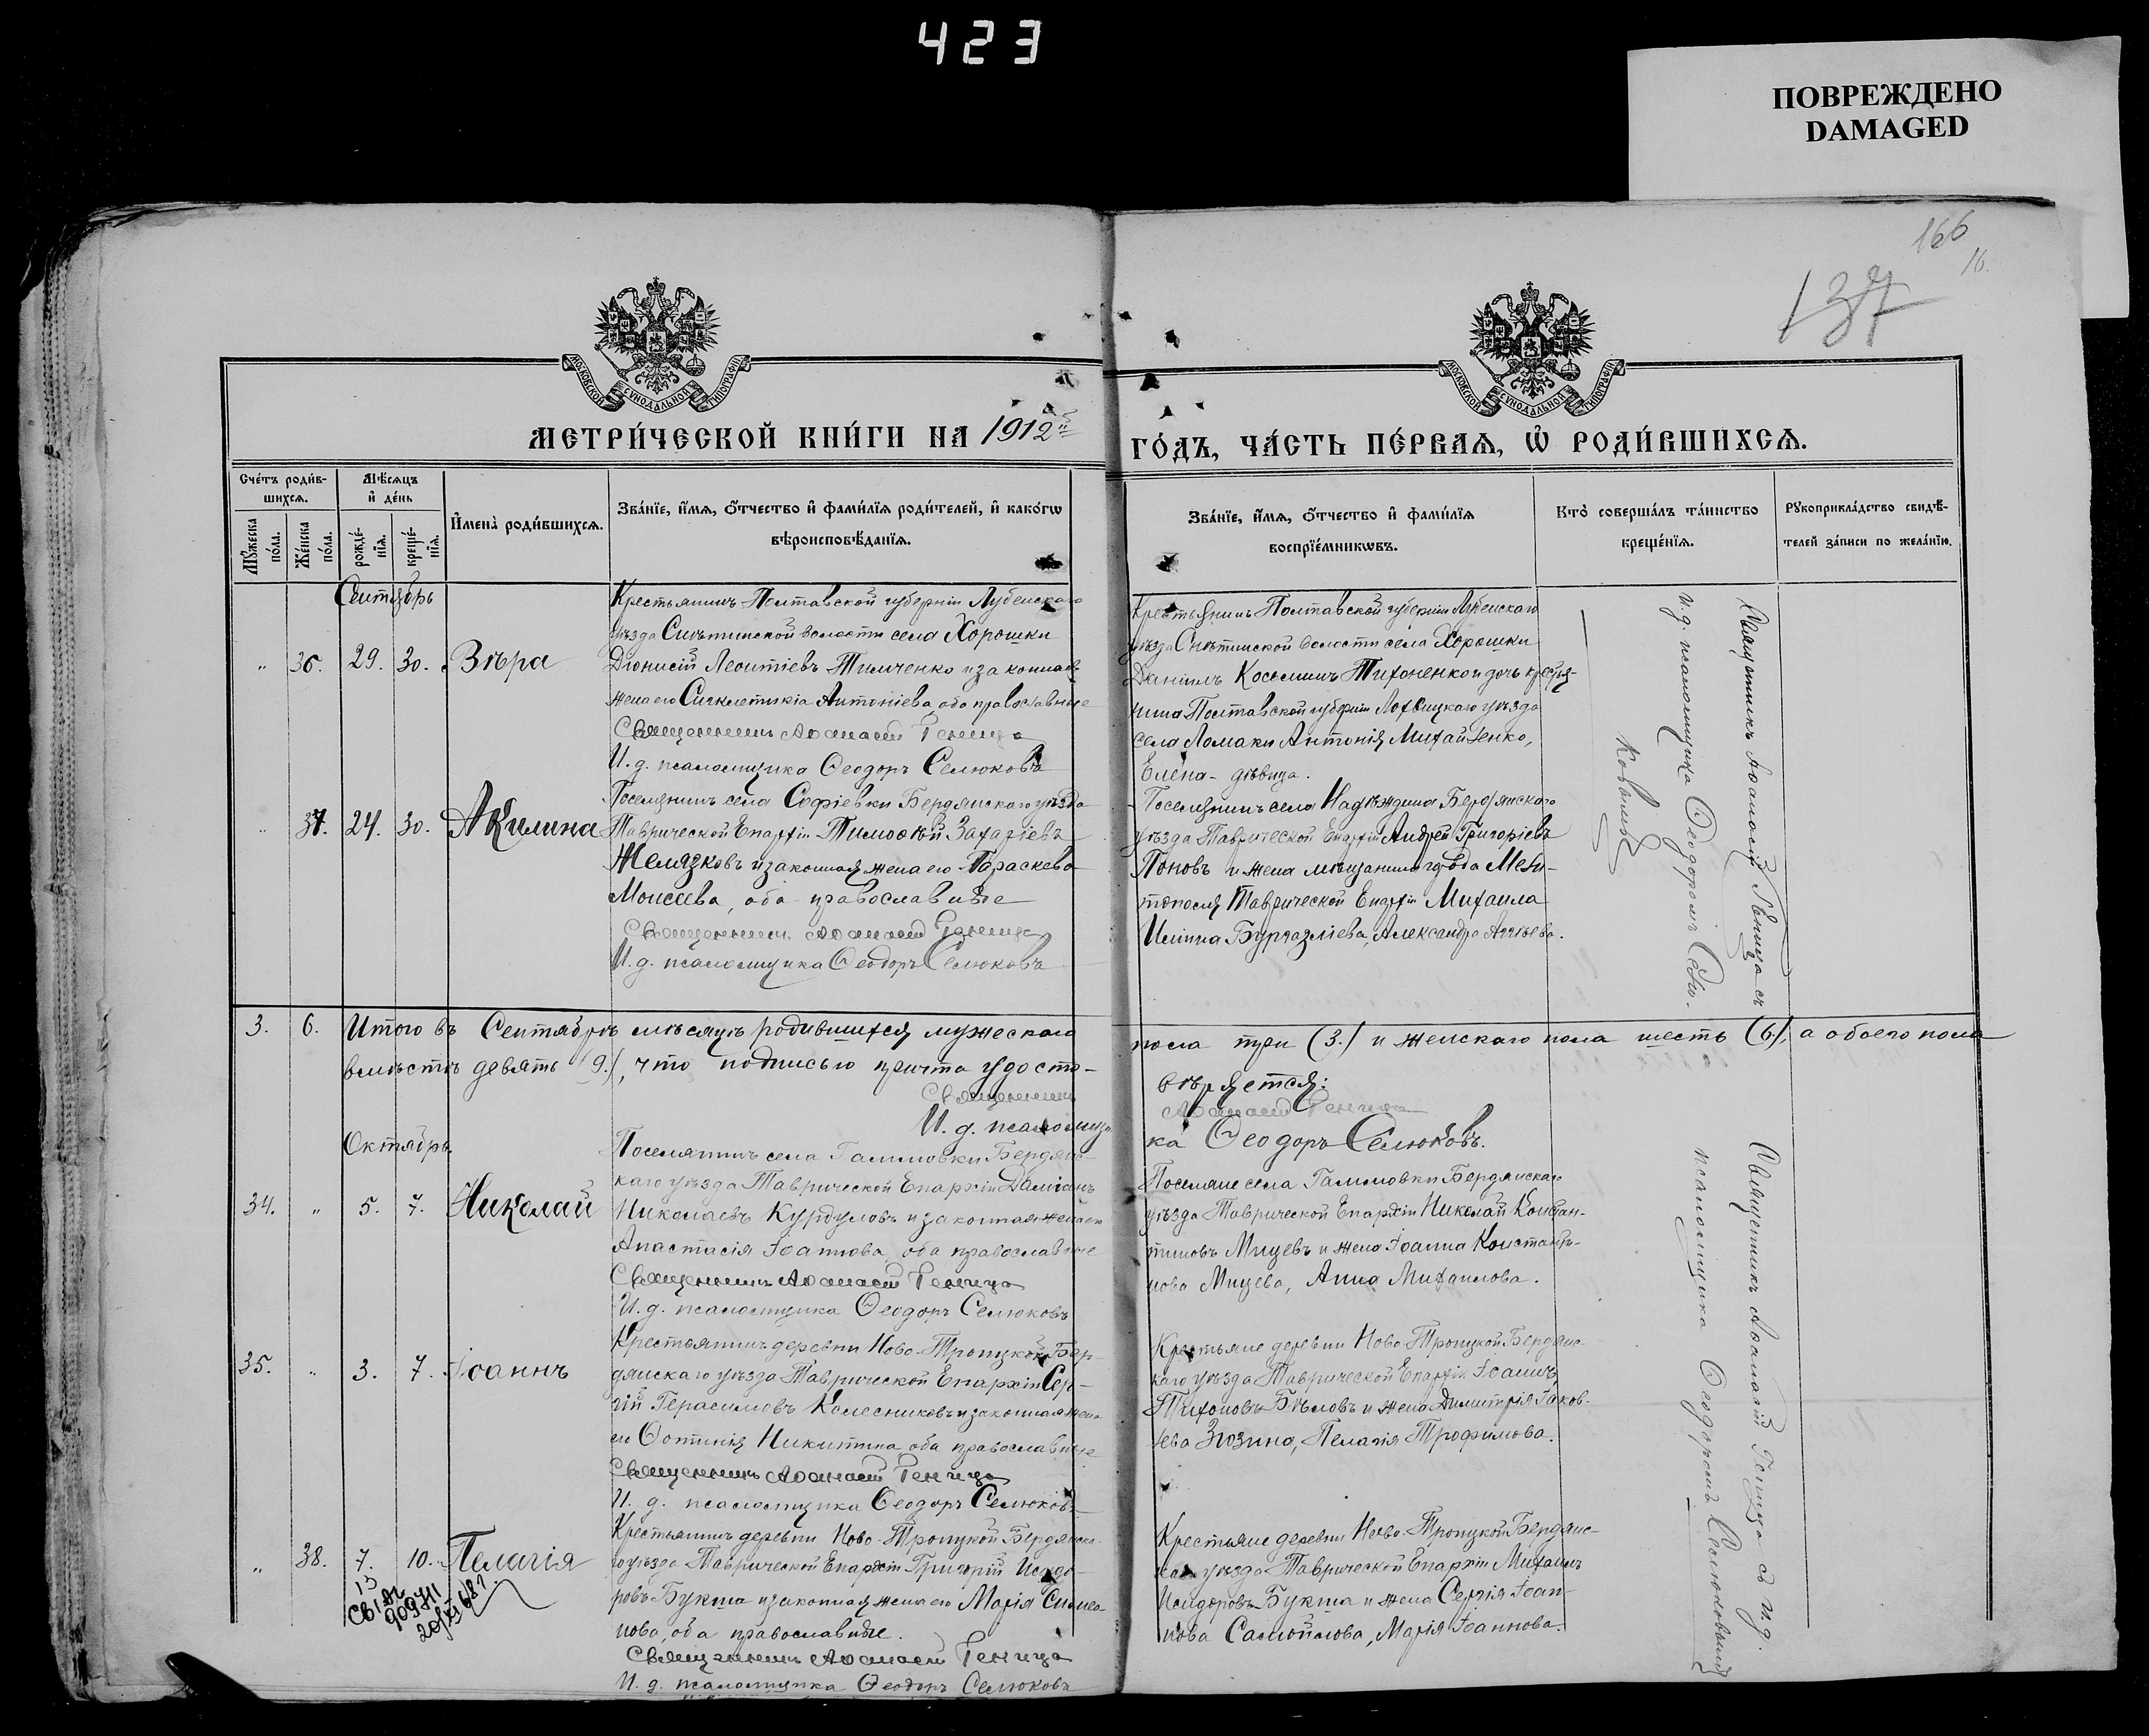 423
ПОВРЕЖДЕНО
DAMAGED
166
16.
137
МОСКОВСКОЙ СѴНОДАЛЬНОЙ ТИПОГРАФІИ
МОСКОВСКОЙ СѴНОДАЛЬНОЙ ТИПОГРАФІИ
МЕТРИ́ЧЕСКОЙ КНИ́ГИ НА 1912й
ГО́ДЪ, ЧА́СТЬ ПЕ́РВАѦ, Ѡ҆ РОДИ́ВШИХСѦ.
Сче́тъ роди́в-
шихсѧ.
Мꙋ́жеска по́ла.
Же́нска по́ла.
Мѣ́сѧцъ
и҆ де́нь
рожде́-
нїѧ.
креще́-
нїѧ.
И҆мена̀ роди́вшихсѧ.
Зва́нїе, и҆́мѧ, ѻ҆́тчество и҆ фами́лїѧ роди́телей, и҆ како́гѡ
вѣроисповѣ́данїѧ.
Зва́нїе, и҆́мѧ, ѻ҆́тчество и҆ фами́лїѧ
воспрїе́мникѡвъ.
Кто̀ соверша́лъ та́инство
креще́нїѧ.
Рꙋкоприкла́дство свидѣ́-
телей за́писи по жела́нїю.
Сентябрь
" 36. 29. 30. Вѣра
Крестьянинъ Полтавской губерніи Лубенскаго
уѣзда Снѣтинской волости села Хорошки
Діонисій Леонтіевъ Тимченко и законная
жена его Сигклетикіа Антоніева, оба православные
Священникъ Аѳанасій Геница
И. д. псаломщика Ѳеодоръ Селюковъ
Крестьянинъ Полтавской губерніи Лубенскаго
уѣзда Снѣтинской волости села Хорошки
Даніилъ Косьминъ Тихоненко и дочь крестья-
нина Полтавской губерніи Лохвицкаго уѣзда
села Ломаки Антонія Михайленко,
Елена - дѣвица.
" 37. 24. 30. Акилина
Поселянинъ села Софіевки Бердянскаго уѣзда
Таврической Епархіи Тимоѳей Захаріевъ
Желязковъ и законная жена его Параскева
Моисеева, оба православные
Священникъ Аѳанасій Геница
И. д. псаломщика Ѳеодоръ Селюковъ
Поселянинъ села Надеждина Бердянскаго
уѣзда Таврической Епархіи Андрей Григоріевъ
Поповъ и жена мѣщанина города Мели-
тополя Таврической Епархіи Михаила
Ильина Александра
Священникъ Аѳанасій Геница съ
и. д. псаломщика Ѳеодоромъ Селю-
ковымъ
3. 6. Итого въ Сентябрѣ мѣсяцѣ родившихся мужескаго
пола три (3.) и женскаго пола шесть (6.), а обоего пола
вмѣстѣ девять (9.), что подписью причта удосто-
вѣряется:
Священникъ
Аѳанасій Геница
И. д. псаломщи-
ка Ѳеодоръ Селюковъ.
Октябрь.
34. " 5. 7. Николай
Поселянинъ села Галимовки Бердянс-
каго уѣзда Таврической Епархіи Даміанъ
Николаевъ Курдуловъ и законная жена его
Анастасія Іоаннова, оба православные
Священникъ Аѳанасій Геница
И. д. псаломщика Ѳеодоръ Селюковъ
Поселяне села Галимовки Бердянскаго
уѣзда Таврической Епархіи Николай Констан-
тиновъ Мицевъ и жена Іоанна Константи-
нова Мицева, Анна Михаилова.
35. " 3. 7. Іоаннъ
Крестьянинъ деревни Ново-Троицкой Бер-
дянскаго уѣзда Таврической Епархіи Сер-
гій Герасимовъ Колесниковъ и законная жена
его Фотинія Никитина, оба православные
Священникъ Аѳанасій Геница
И. д. псаломщика Ѳеодоръ Селюковъ
Крестьяне деревни Ново-Троицкой Бердянс-
каго уѣзда Таврической Епархіи Іоаннъ
Тихоновъ Бѣловъ и жена Димитрія Іаков-
лева Пелагія Трофимова.
" 38. 7. 10. Пелагія
Крестьянинъ деревни Ново-Троицкой Бердянска-
го уѣзда Таврической Епархіи Григорій Исидо-
ровъ Букша и законная жена его Марія Симео-
нова, оба православные.
Священникъ Аѳанасій Геница
И. д. псаломщика Ѳеодоръ Селюковъ
Крестьяне деревни Ново-Троицкой Бердянс-
каго уѣзда Таврической Епархіи Михаилъ
Исидоровъ Букша и жена Сергія Іоан-
нова Самойлова, Марія Іоаннова.
Священникъ Аѳанасій Геница съ и. д.
псаломщика Ѳеодоромъ Селюковымъ